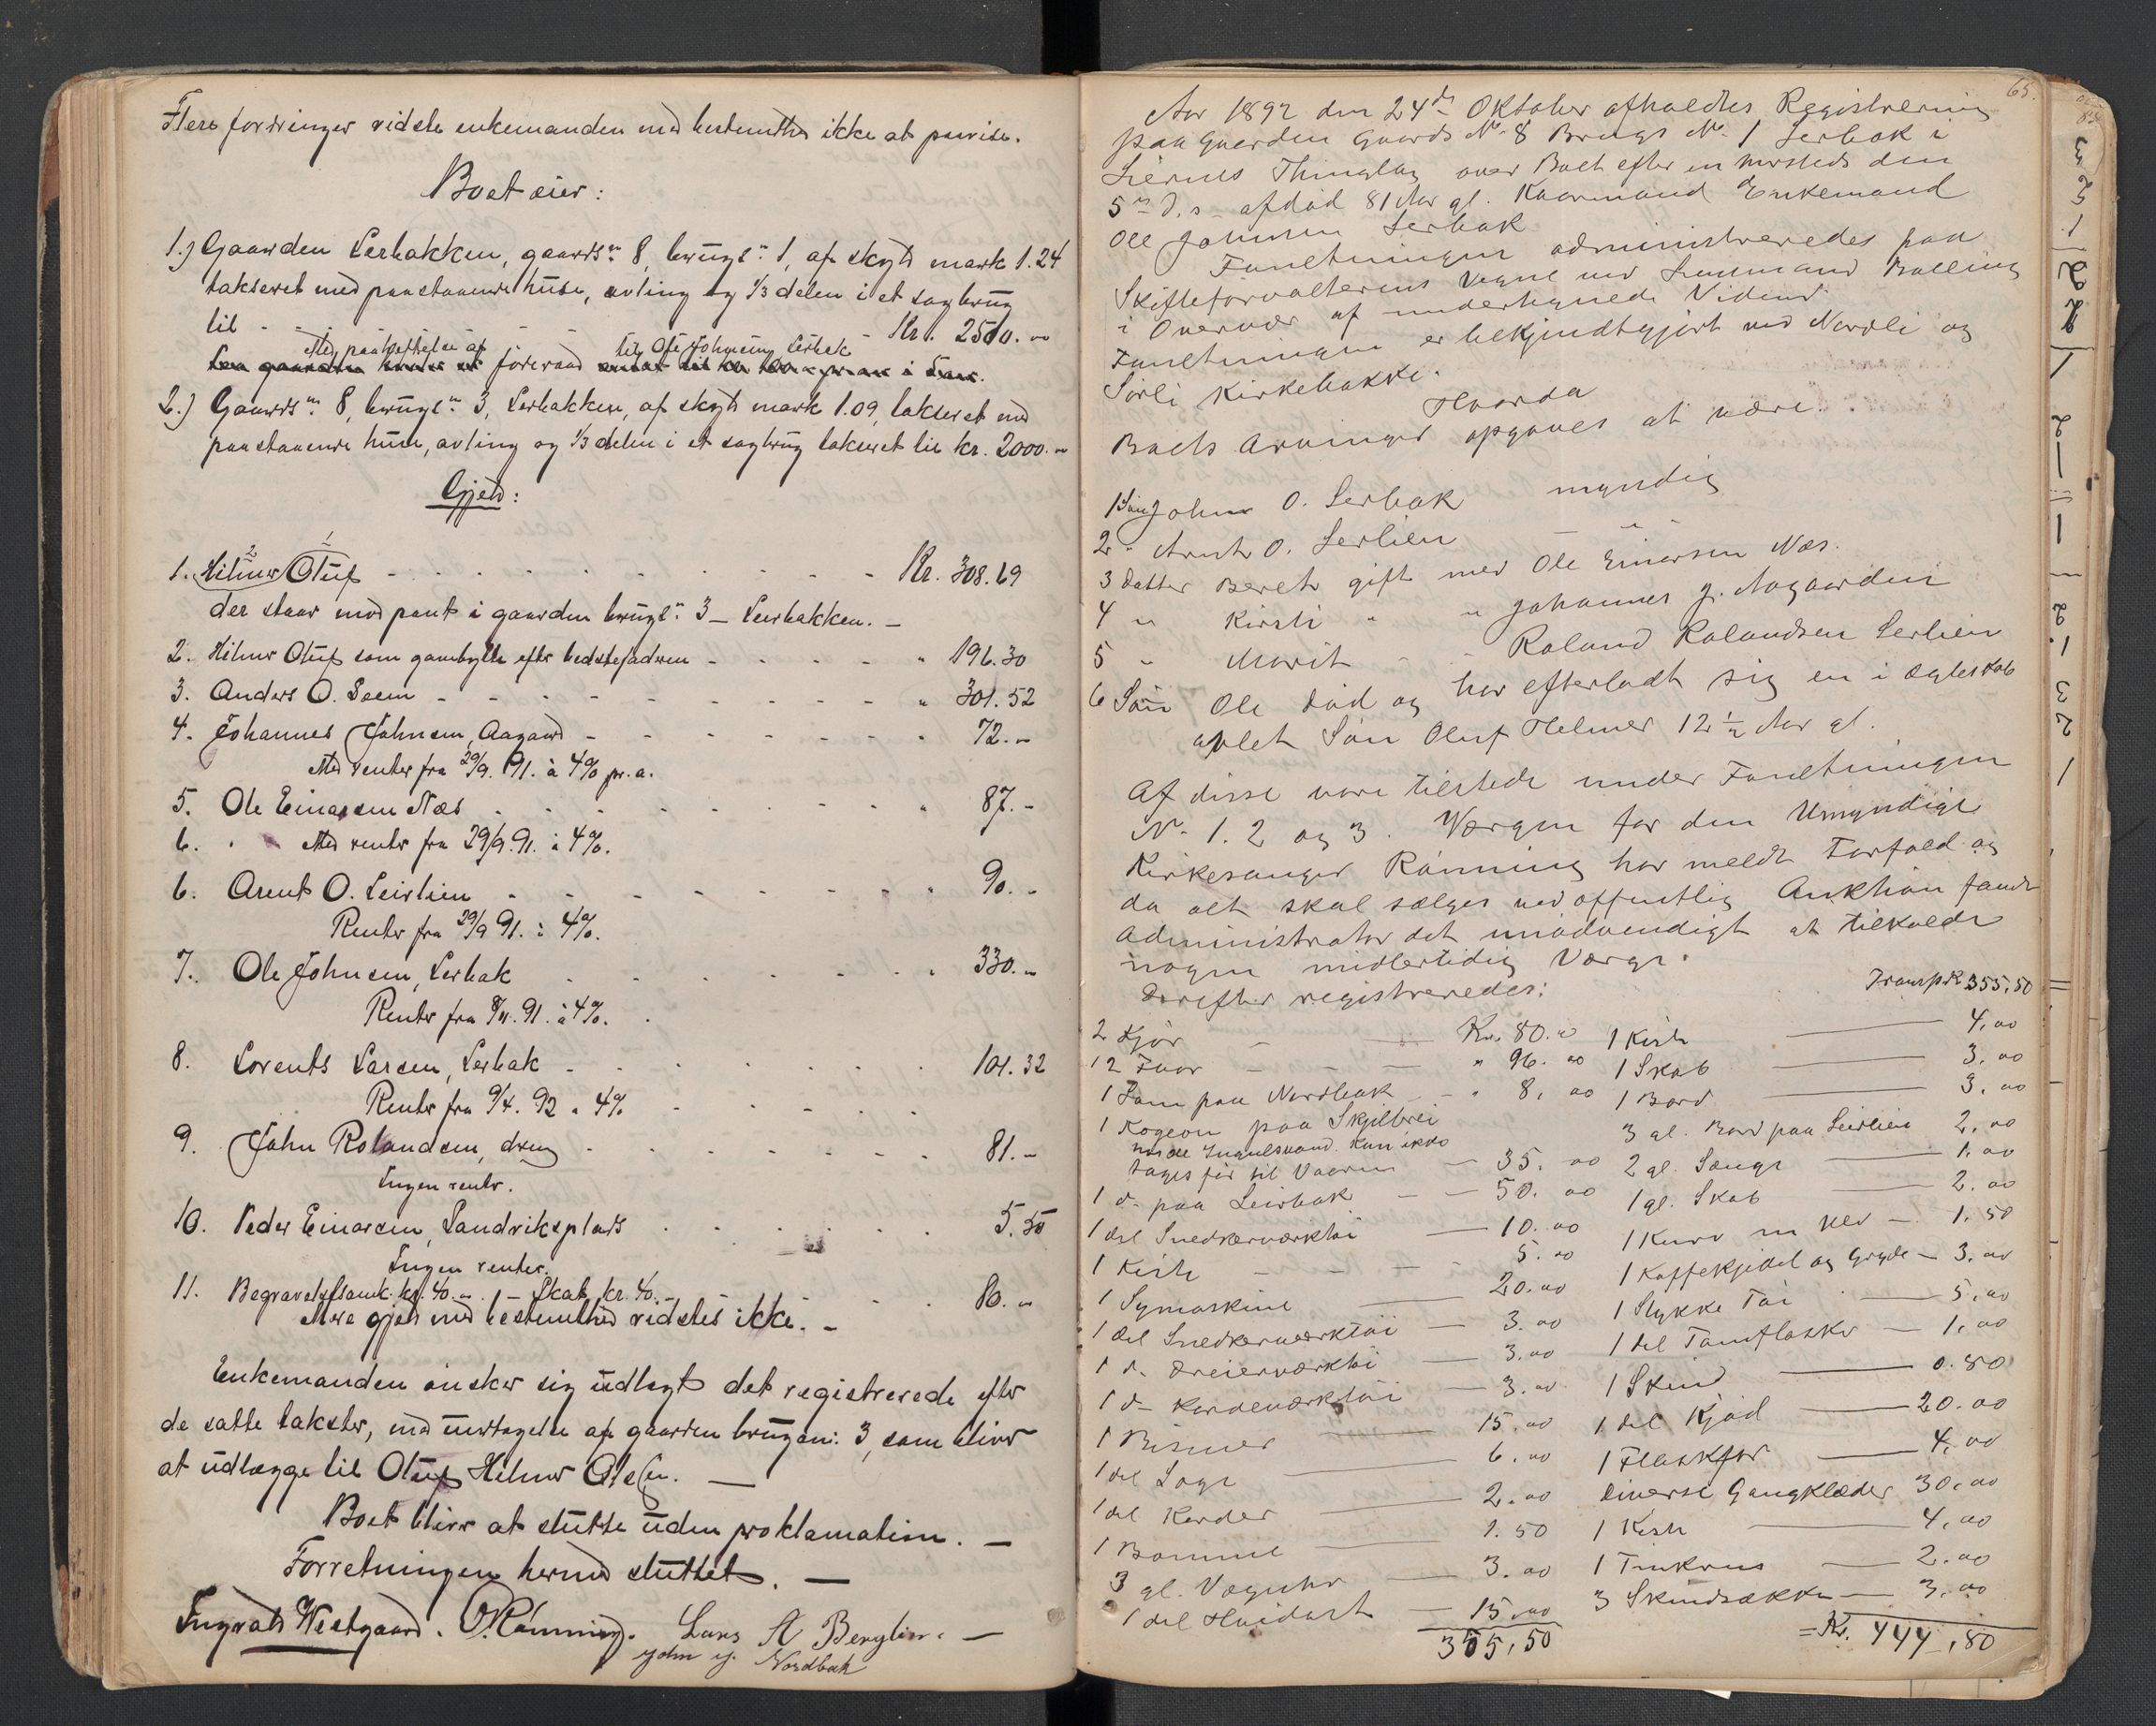 Flere fordringer vidste enkemanden med bestemthed ikke at paavise.
Boet eier:
1.) Gaarden Lerbakken, gaards n: 8, brugs n: 1, af skyld mark 1.24
takseret med paastaaende huse, avling og 1/3 delen i et sagbrug
til - - - Kr. 2500.-
Med paaheftelse af til Ole Johnsen Lerbak
föreraad
2.) Gaards n: 8, brugs n: 3, Lerbakken, af skyld mark 1.09, takseret med
paastaaende huse, avling og 1/3 delen i et sagbrug takseret til kr. 2000.-
Gjeld:
2 1
1. Hilmer Oluf - - - Kr. 308.69
der staar mod pant i gaarden brugs n: 3 - Leerbakken. -
2. Hilmer Oluf som efter bedstefadren - - - " 196.30
3. Anders O. Seem - - - " 301.52
4. Johannes Johnsen, Aagaard - - - " 72.-
Med renter fra 29/9. 91. à 4% pr. a.
5. Ole Einarsen Næs - - - " 87.-
6. " Med renter fra 29/9. 91. à 4%.
6. Arent O. Leirlien - - - " 90.-
Renter fra 29/9 91. à 4%.
7. Ole Johnsen, Lerbak - - - " 330.-
Renter fra 8/11. 91. à 4%.
8. Lorents Larsen, Lerbak - - - 101.32
Renter fra 9/4. 92 à 4%
9. John Rolandsen, dreng - - - 81.-
Ingen renter.
10. Peder Einarsen, Sandviksplads - - - 5.50
Ingen renter.
11. Begravelsesomk. kr. 40.- . - Skat kr. 40.- - - 80.-
Mere gjeld med bestemthed vidstes ikke. -
Enkemanden önsker sig udlagt det registrerede efter
de satte takster, med undtagelse af gaarden brugsn: 3, som bliver
at udlægge til Oluf Hilmer Olesen. -
Boet bliver at slutte uden proklamation. -
Forretningen hermed sluttet. -
Ingvald Westgaard. O. Rönning. Lars A Berglin. -
John J. Nordbak
65.
Aar 1892 den 24de Oktober afholdtes Registrering
paa Gaarden Gaards No. 8 Brugs No. 1 Lerbak i
Liernes Thinglag over Boet efter en hersteds den
5te d.s. afdöd 81 Aar gl. Kaarmand Enkemand
Ole Johnsen Lerbak
Forretningen administreredes paa
Skifteforvalterens Vegne ved Lensmand Balling
i Overvær af undertegnede Vidner.
Forretningen er bekjendtgjort ved Nordli og
Sörli Kirkebakke.
Hvorda
Boets Arvinger opgaves at være:
1 Sön John O. Lerbak myndig
2 " Arnt O. Lerlien - " -
3 Datter Beret gift med Ole Einarsen Næs.
4 " Kirsti " " Johannes J. Aagaarden
5 " Marit - - Roland Rolandsen Lerlien
6 Sön Ole död og har efterladt sig en i Ægteskab
avlet Sön Oluf Helmer 12 1/2 Aar gl.
Af disse vare tilstede under Forretningen
No. 1. 2 og 3. Værgen for den Umyndige
Kirkesanger Rönning har meldt Forfald og
da alt skal sælges ved offentlig Auktion fandt
Administrator det unödvendigt at tilkalde
nogen midlertidig Værge.
Derefter registreredes:
Transp. Kr 355,50
2 Kjör - - Kr. 80.00
12 Faar - - " 96.00
1 Lam paa Nordbak - " 8.00
1 Kogeovn paa Skjelbrei
nede Ingulsvand. Kan ikke
tages för til Vaaren - 35.00
1 do paa Leirbak - - 50.00
1 del Snedkerværktöi - 10.00
1 Kiste - - - 5.00
1 Symaskine - 20.00
1 del Snedkerværktöi - 3.00
1 do Dreierværktöi - 3.00
1 do Kardeværktöi - 3.00
1 Bismer - 15.00
1 del Sage - 6.00
1 del Karder - 2.00
1 Bomme - 1.50
3 gl. Væguhr - 3.00
1 del Hvidast - 15.00
355,50
1 Kiste - 4.00
1 Skab - 3.00
1 Bord - 3.00
3 gl. Bord paa Leirlien 2.00
2 gl. Senge - 1.00
1 gl. Skab - 2.00
1 Kurv m Uld - 1.50
1 Kaffekjedel og Gryde - 3.00
1 Stykke Töi - 5.00
1 del Tomflasker - 1.00
1 Skind - 0.80
1 del Kjöd - 20.00
1 Flaskfor - 4.00
Diverse Gangklæder 30.00
1 Kiste - 4.00
1 Tinkrus - 2.00
3 Skindsække - 3.00
= Kr. 444,80